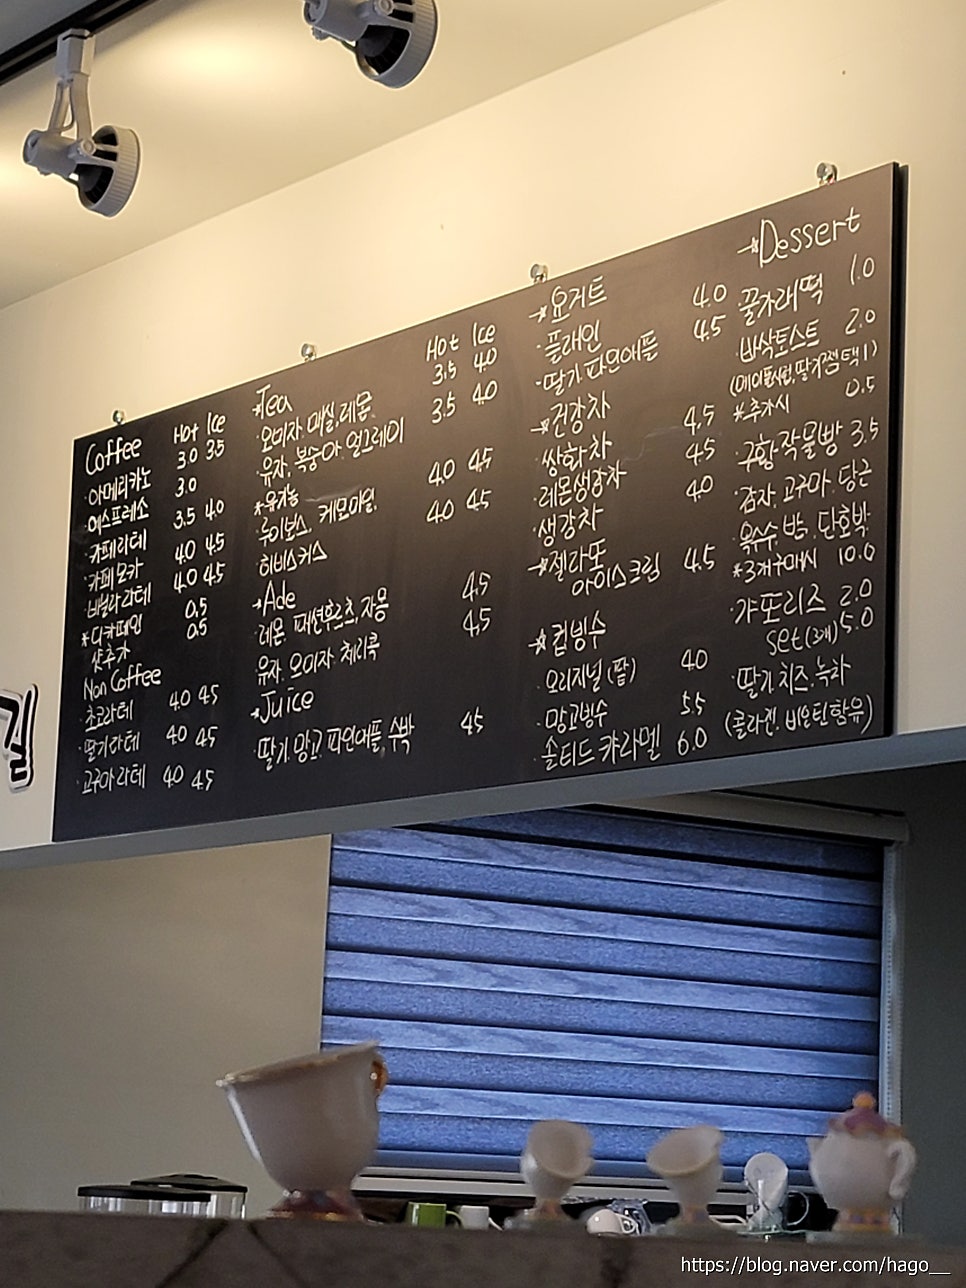 Coffee Hot Ice
·아메리카노 3.0 3.5
·에스프레소 3.0
·카페라떼 3.5 4.0
·카페모카 4.0 4.5
·바닐라라떼 4.0 4.5
*디카페인 0.5
샷추가 0.5
Non Coffee
·초코라떼 4.0 4.5
·딸기라떼 4.0 4.5
·고구마라떼 4.0 4.5
Tea Hot Ice
오미자. 매실. 레몬. 3.5 4.0
유자. 복숭아. 얼그레이 3.5 4.0
*유기농
루이보스. 케모마일. 4.0 4.5
히비스커스 4.0 4.5
Ade
·레몬. 패션후르츠. 자몽 4.5
유자. 오미자. 체리콕 4.5
Juice
·딸기. 망고. 파인애플. 수박 4.5
요거트
·플래인 4.0
·딸기. 파인애플 4.5
건강차
·쌍화차 4.5
·레몬생강차 4.5
·생강차 4.0
젤라또
아이스크림 4.5
컵빙수
·오리지널(팥) 4.0
·망고빙수 5.5
·솔티드 캬라멜 6.0
Dessert
·꿀가래떡 1.0
·바싹토스트 2.0
(메이플시럽, 딸기쨈 택1)
*추가시 0.5
·구황작물빵 3.5
감자. 고구마. 당근
옥수수. 밤. 단호박
*3개구매시 10.0
·갸또리즈 2.0
set(3개) 5.0
·딸기. 치즈. 녹차
(콜라겐. 비오틴함유)
집
https://blog.naver.com/hago__